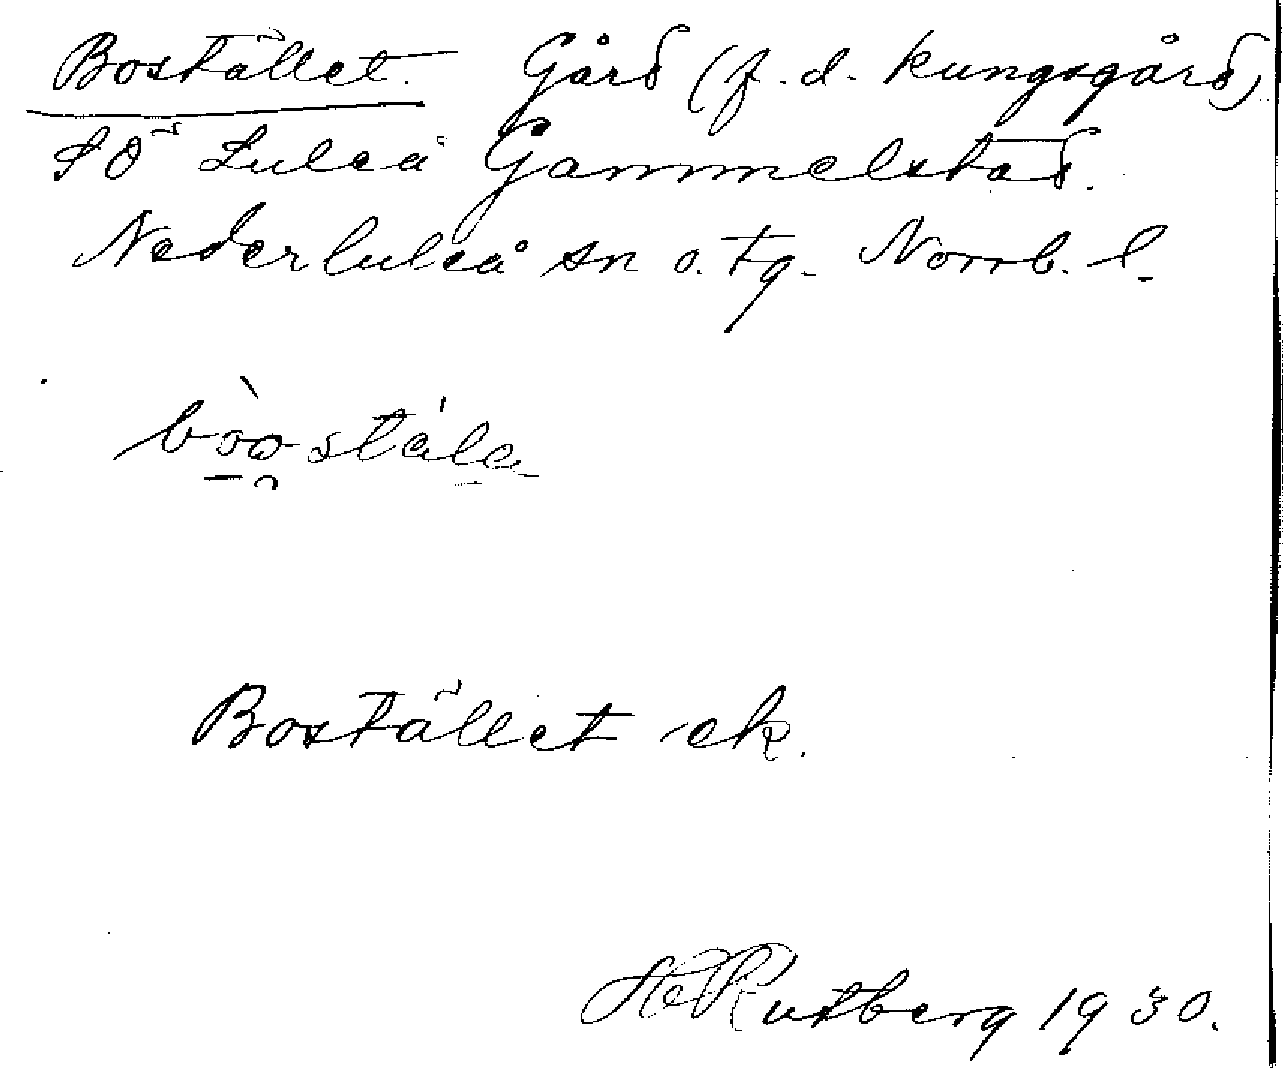 Bostället. Gård (f. d. kungsgård)
SÖ Luleå Gammelstad.
Nederluleå sn o. tg. Norrb. l.
bòostála
Bostället ek.
HRutberg 1930.